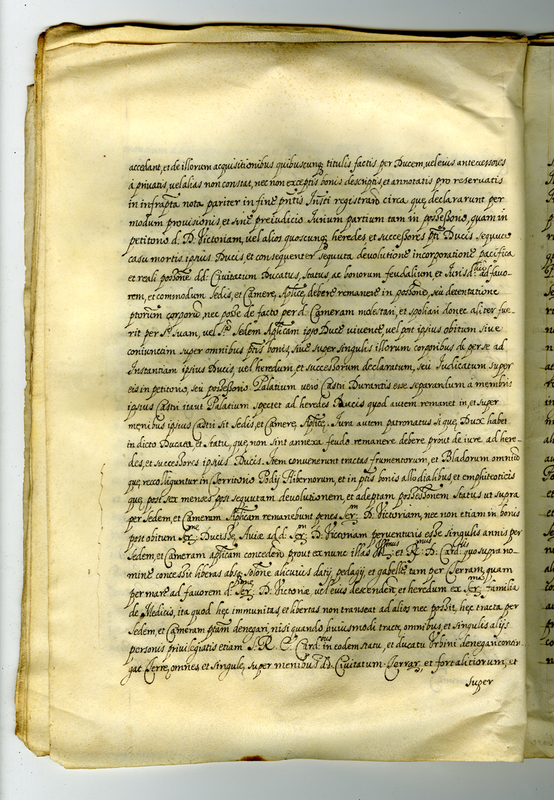 accedant, et de illorum acquisitionibus quibuscunq; titulis factis per Ducem, vel eius antecessores
à privatis, vel alias non constat, nec non exceptis bonis descriptis, et annotatis pro reservatis
in infrapta nota pariter in fine pntis Insti registran circa que, declararunt per
modum provisionis et sine preiudicio Iurium partium tam in possessorio, quam in
petitorio d. D. Victoriam, vel alios quoscunq; heredes et successores pti Ducis sequuto
casu mortis ipsius Ducis et consequenter sequuta devolutione incorporatione pacifica
et reali possne dd. Civitatum Ducatus, Status ac bonorum feudalium et Iurisd. ad favo-
rem, et commodum Sedis, et Camere, Aplice, debere remanere in possne, seu detentatione
ptorum corporum nec posse de facto per d. Cameram molestari, et spoliari donec aliter fue-
rit per S. Suam, vel S. Sedem Aplicam ipso Duce vivente, vel post ipsius obitum sive
coniunctim super omnibus ptis bonis, sive super singulis illorum corporibus di per se ad
Instantiam ipsius Ducis, vel heredum, et successorum declaratum, seu Iudicatum super
eis in petitorio, seu possessorio. Palatium vero Castri Durantis esse separandum à membris
ipsius Castri itaut Palatium spectet ad heredes Ducis quod autem remanet in, et super
menibus ipsius Castri sit Sedis, et Camere, Aplice, Iura autem patronatus si que, Dux habet
in dicto Ducatu, et statu, que, non sint annexa feudo remanere debere prout de iure ad here-
des, et successores ipsius Ducis. Item convenerunt tractas frumentorum, et Bladorum omnium
que, recolliguntur in Territorio Podij Hibernorum, et in ptis bonis allodialibus et emphiteoticis
que, post sex menses post sequutam devolutionem, et adeptam possessionem Status ut supra
per Sedem, et Cameram Aplicam remanebunt penes Ser. D. Victoriam, nec non etiam in bonis
post obitum Ser. Ducisse, Aviae ad d. Ser. D. Victoriam perventuris esse singulis annis per
Sedem, et Cameram aplicam conceden prout ex nunc illas Ill. et R. D. Card. quo supra no-
mine concessit liberas absq; solone alicuius datij, pedagij, et gabelle, tam per Terram, quam
per mare ad favorem d. Ser. D. Victoriae, vel eius descenden, et heredum ex Ser. Familia
de Medicis, ita quod hec immunitas et libertas non transeat ad alios nec possit, hec tracta per
Sedem, et Cameram ptam denegari, nisi quando huiusmodi tracte, omnibus, et singulis alijs
personis privilegiatis etiam S. R. E. Card. in eodem statu, et ducatu Urbini denegari contin-
gat Terre, omnes, et singule, super menibus dd. Civitatum Terrar, et fortalitiorum, ut
super